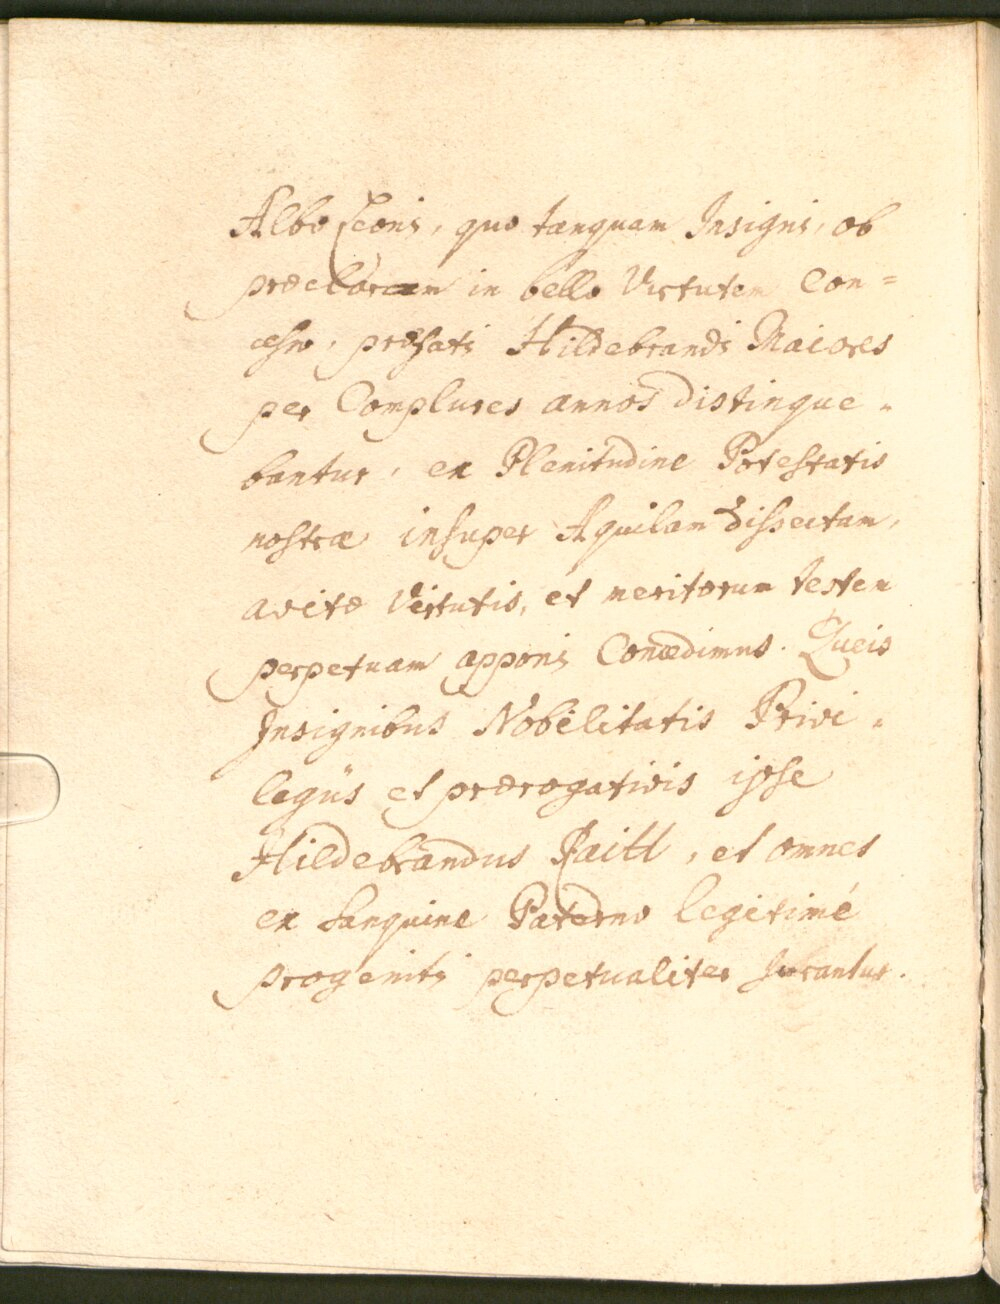 Albo Leoni, quo tanquam Insigni, ob
præclaram in bello Virtutem Con=
cesso, præfati Hildebrandi Maiores
per Complures annos distingue=
bantur, ex Plenitudine Potestatis
nostræ insuper Aquilam dissectam,
avitæ Virtutis, et meritorum testem
perpetuam apponi Concedimus. Queis
Insignibus Nobilitatis Privi=
legijs et prærogativis ipse
Hildebrandus Raitt, et omnes
ex Sanguine Paterno legitimé
progeniti perpetualiter fruantur.